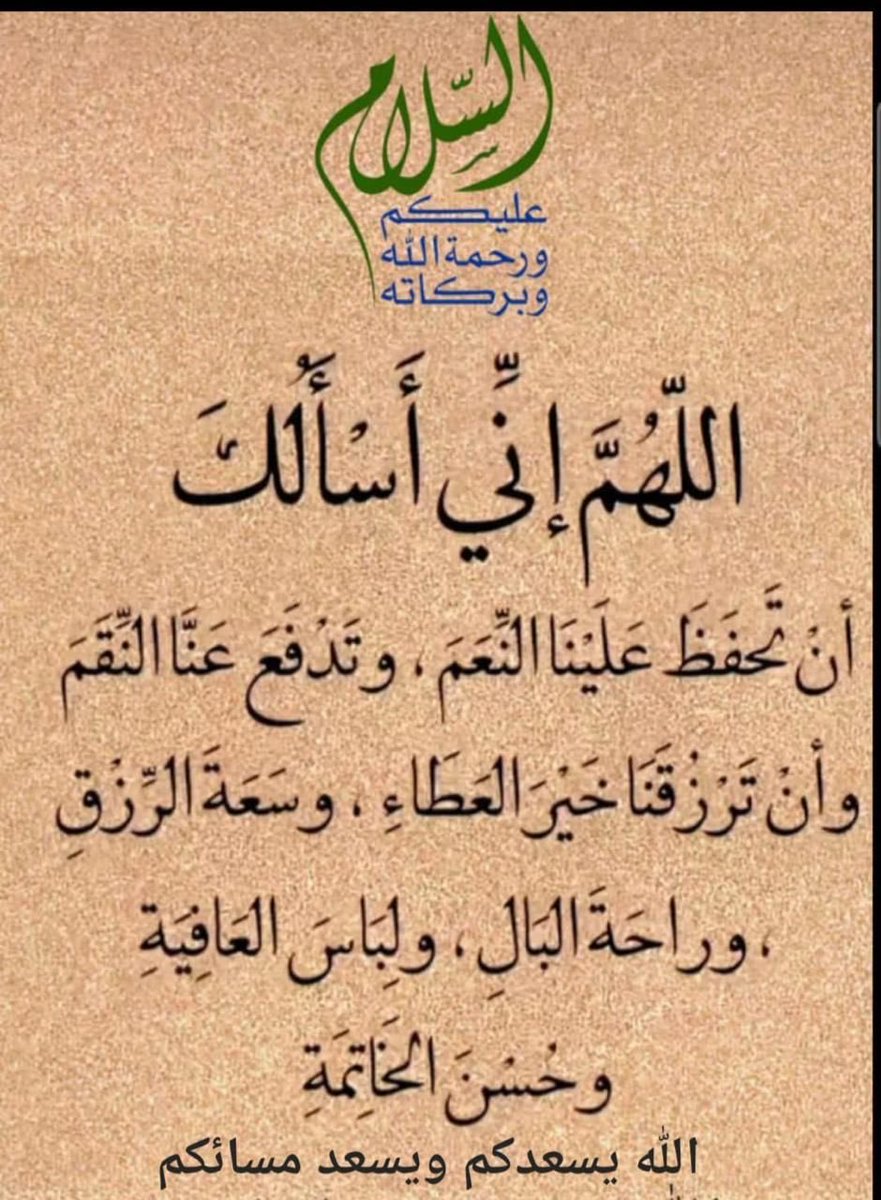 السّلام
عليكم
ورحمة الله
وبركاته
اللّهُمَّ إنِّي أَسْأَلُكَ
أنْ تَحفَظَ عَلَيْنَا النِّعَمَ ، وتَدْفَعَ عَنَّا النِّقَمَ
وأنْ تَرْزُقَنَا خَيْرَ العَطَاءِ ، وسَعَةَ الرِّزْقِ
، وراحَةَ البَالِ ، ولِبَاسَ العَافِيَةِ
وحُسْنَ الخَاتِمَةِ
الله يسعدكم ويسعد مسائكم